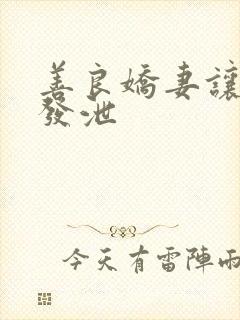 善良嬌妻讓
發泄
今天有雷陣雨